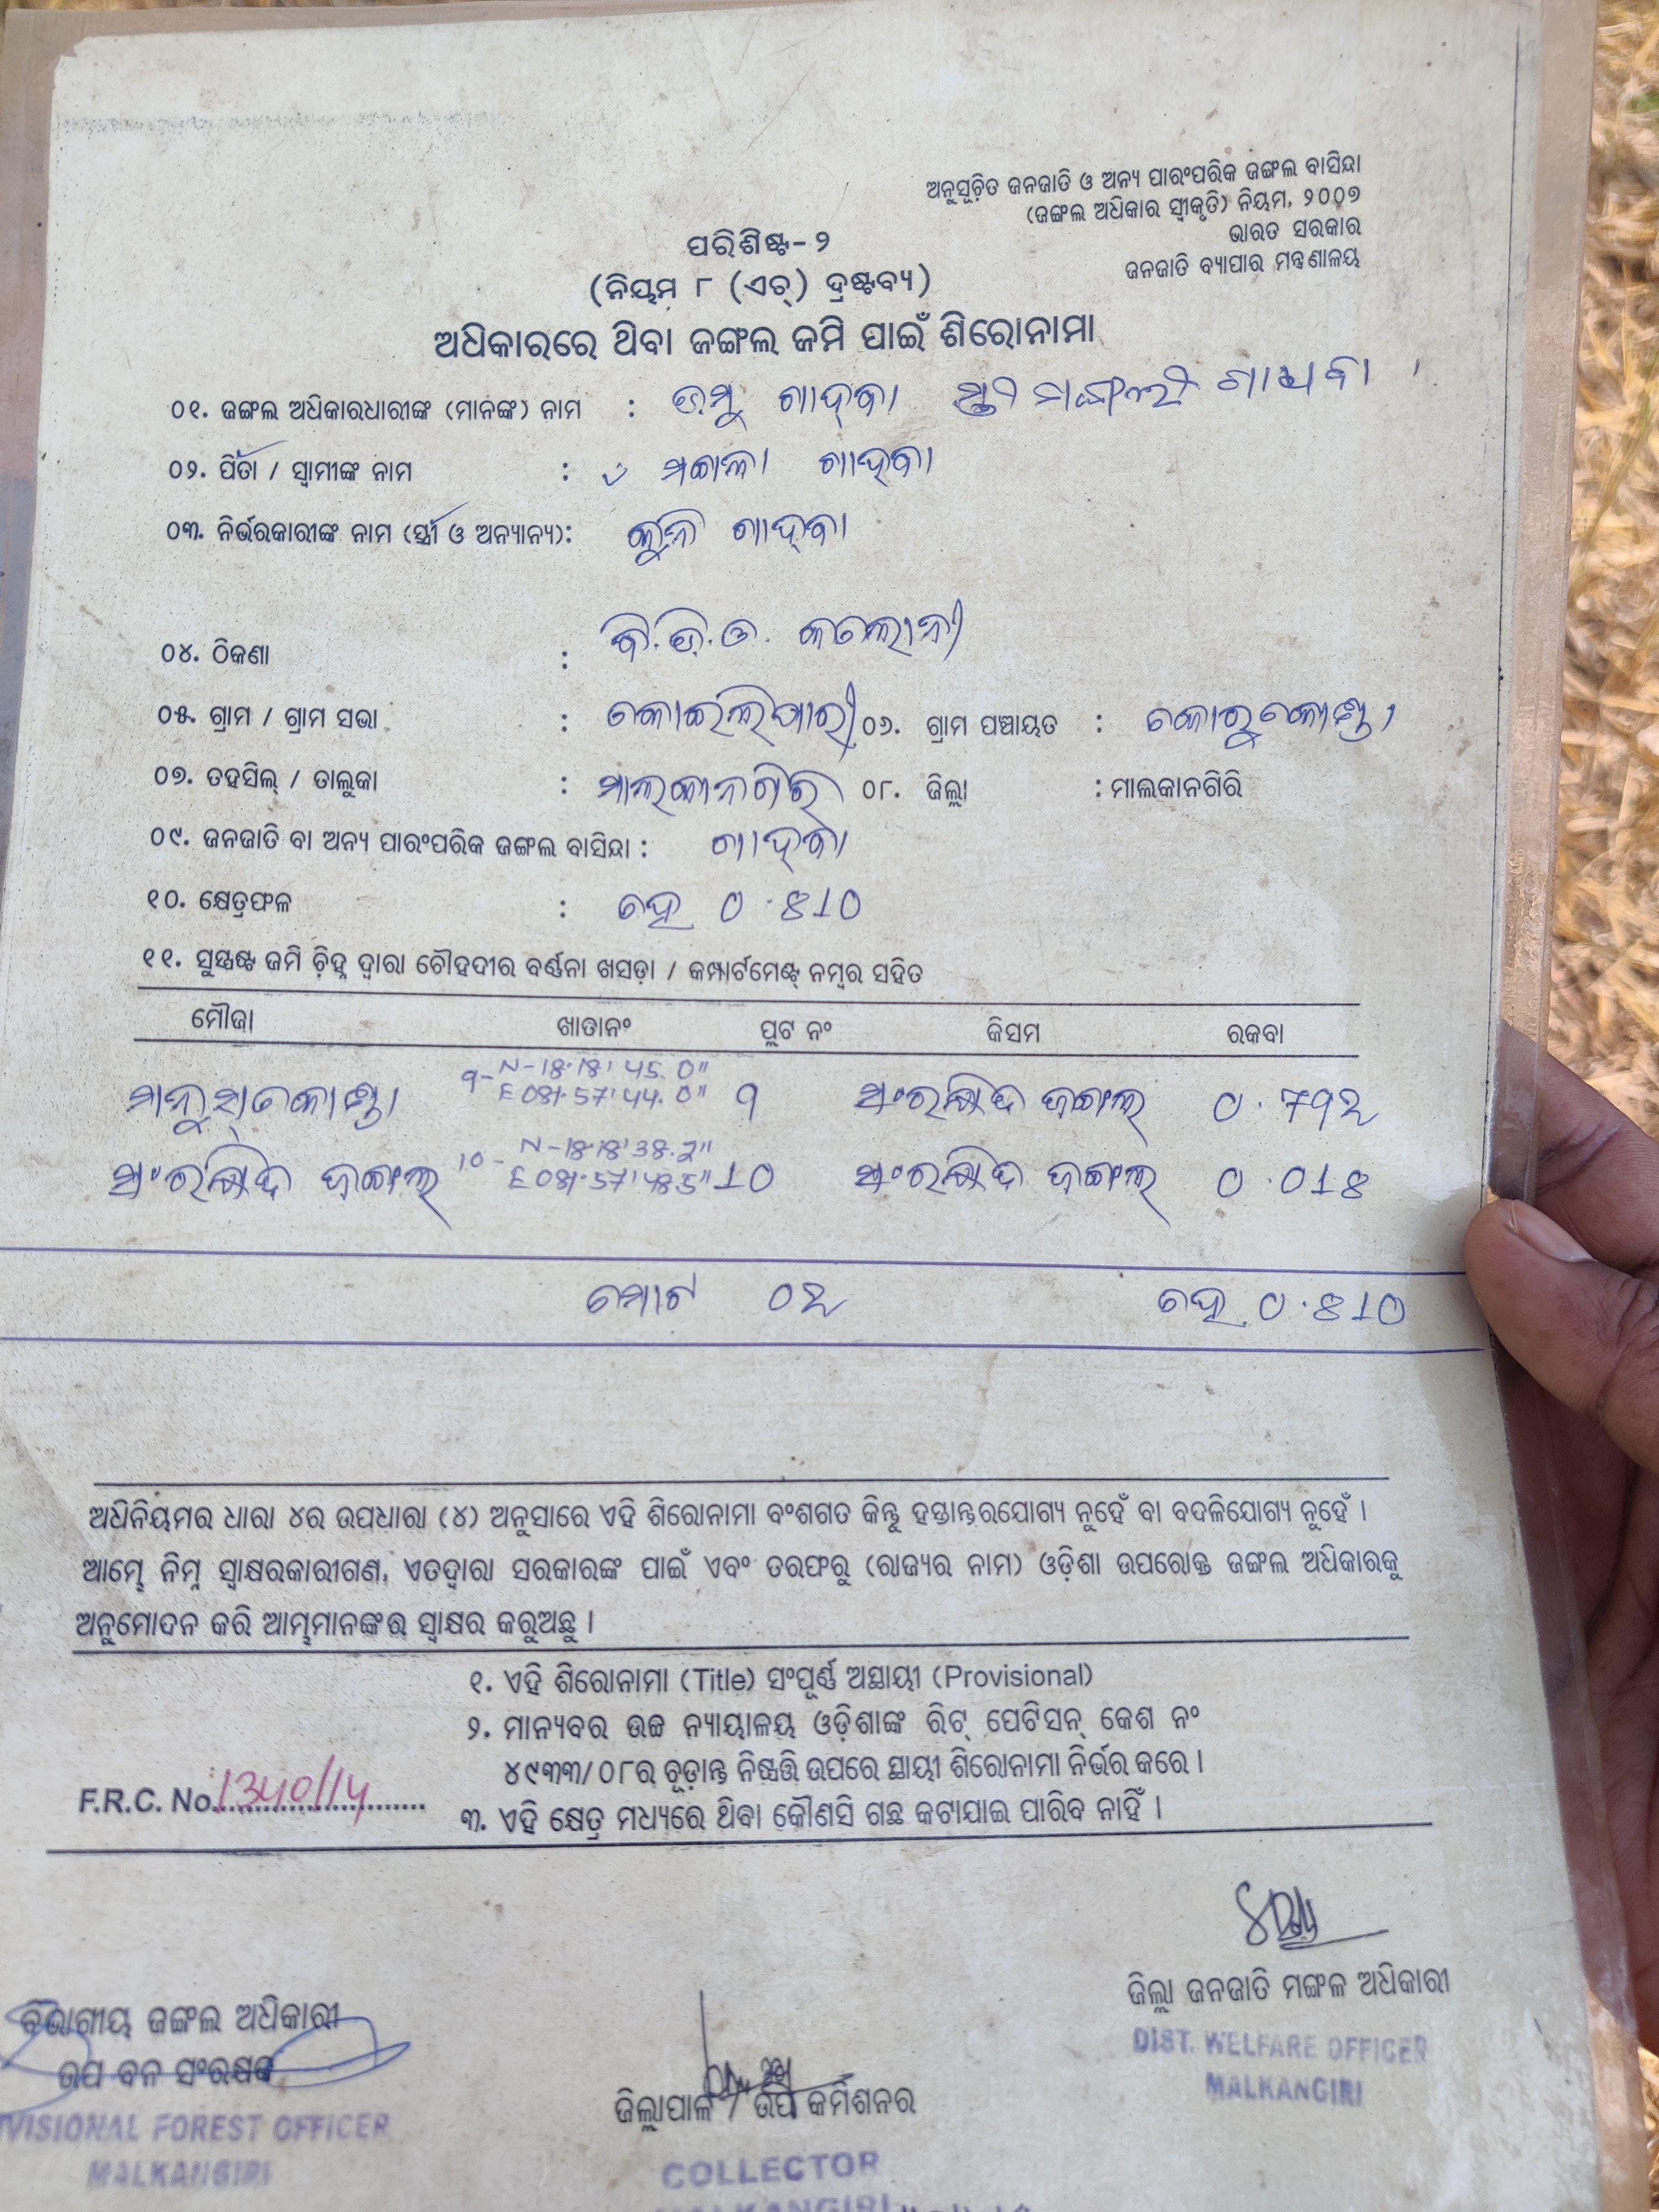 ଅନୁସୂଚିତ ଜନଜାତି ଓ ଅନ୍ୟ ପାରଂପରିକ ଜଙ୍ଗଲ ବାସିନ୍ଦା
(ଜଙ୍ଗଲ ଅଧିକାର ସ୍ୱୀକୃତି) ନିୟମ, ୨୦୦୭
ଭାରତ ସରକାର
ଜନଜାତି ବ୍ୟାପାର ମନ୍ତ୍ରଣାଳୟ
ପରିଶିଷ୍ଟ-୨
(ନିୟମ ୮ (ଏଚ୍) ଦ୍ରଷ୍ଟବ୍ୟ)
ଅଧିକାରରେ ଥିବା ଜଙ୍ଗଲ ଜମି ପାଇଁ ଶିରୋନାମା
୦୧. ଜଙ୍ଗଲ ଅଧିକାରଧାରୀଙ୍କ (ମାନଙ୍କ) ନାମ : ଗାଦ୍‌ବା
୦୨. ପିତା / ସ୍ୱାମୀଙ୍କ ନାମ : ମଙ୍ଗଳା ଗାଦ୍‌ବା
୦୩. ନିର୍ଭରକାରୀଙ୍କ ନାମ (ସ୍ତ୍ରୀ ଓ ଅନ୍ୟାନ୍ୟ): ଗାଦ୍‌ବା
୦୪. ଠିକଣା : ବି.ଡି.ଓ. କଲୋନୀ
୦୫. ଗ୍ରାମ / ଗ୍ରାମ ସଭା : କୋଇଲିପାରୀ ୦୬. ଗ୍ରାମ ପଞ୍ଚାୟତ : କୋରୁକୋଣ୍ଡା
୦୭. ତହସିଲ୍ / ତାଲୁକା : ମାଲକାନଗିରି ୦୮. ଜିଲ୍ଲା : ମାଲକାନଗିରି
୦୯. ଜନଜାତି ବା ଅନ୍ୟ ପାରଂପରିକ ଜଙ୍ଗଲ ବାସିନ୍ଦା : ଗାଦ୍‌ବା
୧୦. କ୍ଷେତ୍ରଫଳ : ହେ ୦.୫୧୦
୧୧. ସୁସ୍ପଷ୍ଟ ଜମି ଚିହ୍ନ ଦ୍ୱାରା ଚୌହଦୀର ବର୍ଣ୍ଣନା ଖସଡ଼ା / କମ୍ପାର୍ଟମେଣ୍ଟ ନମ୍ବର ସହିତ
ମୌଜା ଖାତାନଂ ପ୍ଲଟ ନଂ କିସମ ରକବା
N-18.18'45.0"
E081.57'44.0" ସଂରକ୍ଷିତ ଜଙ୍ଗଲ
10- N-18.18'38.2"
ସଂରକ୍ଷିତ ଜଙ୍ଗଲ E081.57'48.5" ସଂରକ୍ଷିତ ଜଙ୍ଗଲ
ମୋଟ ୦୨ ହେ ୦.୫୧୦
ଅଧିନିୟମର ଧାରା ୪ର ଉପଧାରା (୪) ଅନୁସାରେ ଏହି ଶିରୋନାମା ବଂଶଗତ କିନ୍ତୁ ହସ୍ତାନ୍ତରଯୋଗ୍ୟ ନୁହେଁ ବା ବଦଳିଯୋଗ୍ୟ ନୁହେଁ ।
ଆମ୍ଭେ ନିମ୍ନ ସ୍ୱାକ୍ଷରକାରୀଗଣ, ଏତଦ୍ୱାରା ସରକାରଙ୍କ ପାଇଁ ଏବଂ ତରଫରୁ (ରାଜ୍ୟର ନାମ) ଓଡ଼ିଶା ଉପରୋକ୍ତ ଜଙ୍ଗଲ ଅଧିକାରକୁ
ଅନୁମୋଦନ କରି ଆମ୍ଭମାନଙ୍କର ସ୍ୱାକ୍ଷର କରୁଅଛୁ ।
୧. ଏହି ଶିରୋନାମା (Title) ସଂପୂର୍ଣ୍ଣ ଅସ୍ଥାୟୀ (Provisional)
୨. ମାନ୍ୟବର ଉଚ୍ଚ ନ୍ୟାୟାଳୟ ଓଡ଼ିଶାଙ୍କ ରିଟ୍ ପେଟିସନ୍ କେଶ ନଂ
୪୯୩୩/୦୮ର ଚୂଡ଼ାନ୍ତ ନିଷ୍ପତ୍ତି ଉପରେ ସ୍ଥାୟୀ ଶିରୋନାମା ନିର୍ଭର କରେ ।
F.R.C. No. 1340/14
୩. ଏହି କ୍ଷେତ୍ର ମଧ୍ୟରେ ଥିବା କୌଣସି ଗଛ କଟାଯାଇ ପାରିବ ନାହିଁ ।
ଜିଲ୍ଲା ଜନଜାତି ମଙ୍ଗଳ ଅଧିକାରୀ
DIST. WELFARE OFFICER
MALKANGIRI
ବିଭାଗୀୟ ଜଙ୍ଗଲ ଅଧିକାରୀ
ଉପ ବନ ସଂରକ୍ଷକ
VISIONAL FOREST OFFICER
MALKANGIRI
ଜିଲ୍ଲାପାଳ / ଉପ କମିଶନର
COLLECTOR
MALKANGIRI